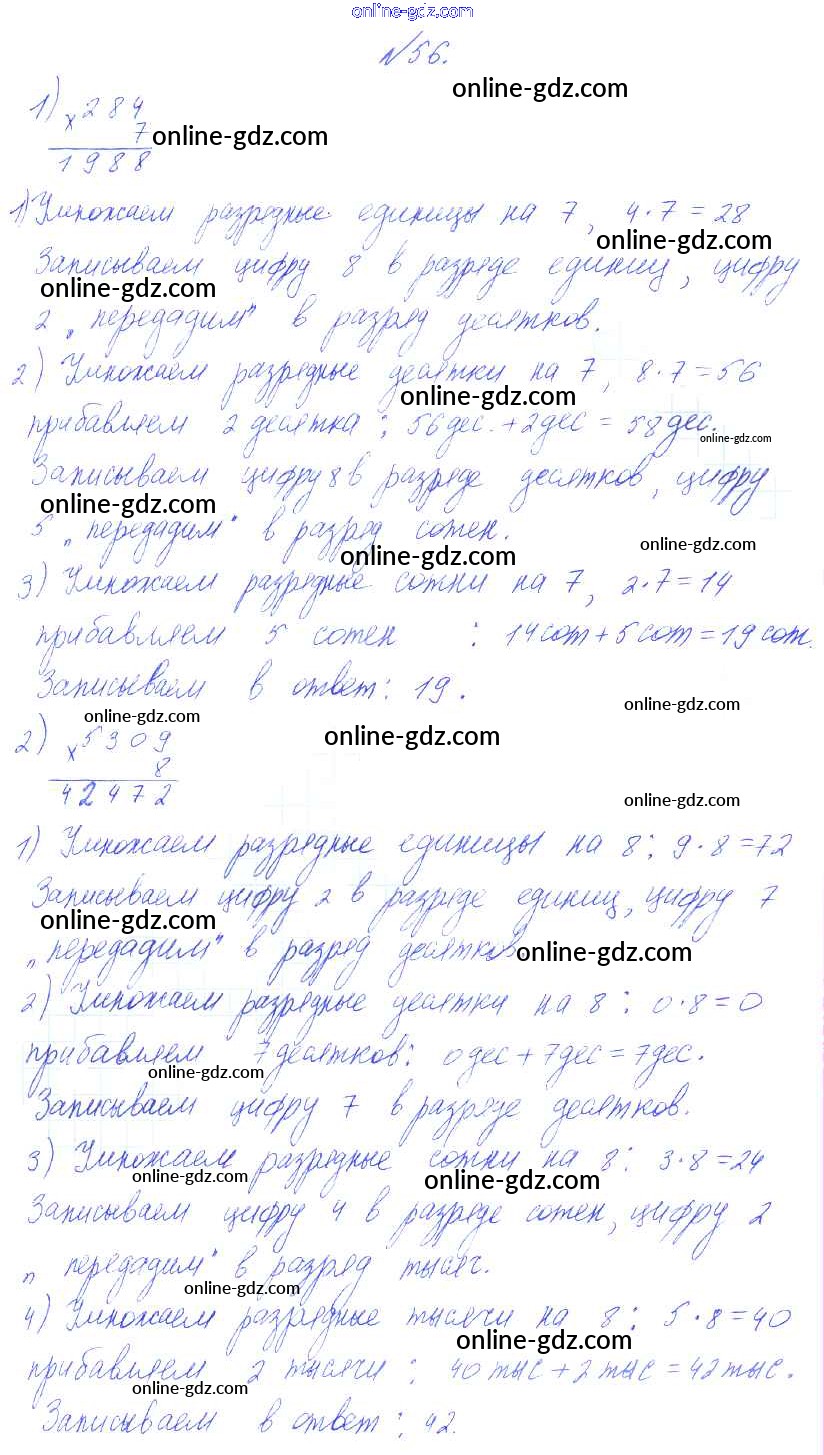 online-gdz.com
№56.
online-gdz.com
1) ×284
7 online-gdz.com
1988
1) Умножаем разрядные единицы на 7, 4·7=28
online-gdz.com
Записываем цифру 8 в разряде единиц, цифру
online-gdz.com
2 „передадим" в разряд десятков.
2) Умножаем разрядные десятки на 7, 8·7=56
online-gdz.com
прибавляем 2 десятка: 56дес.+2дес=58дес.
online-gdz.com
Записываем цифру 8 в разряде десятков, цифру
online-gdz.com
5 „передадим" в разряд сотен.
online-gdz.com
online-gdz.com
3) Умножаем разрядные сотни на 7, 2·7=14
прибавляем 5 сотен : 14сот+5сот=19сот.
Записываем в ответ: 19.
online-gdz.com
online-gdz.com
2) ×5309
online-gdz.com
8
42472
online-gdz.com
1) Умножаем разрядные единицы на 8: 9·8=72
Записываем цифру 2 в разряде единиц, цифру 7
online-gdz.com
„передадим" в разряд десятков
online-gdz.com
2) Умножаем разрядные десятки на 8: 0·8=0
прибавляем 7десятков: 0дес+7дес=7дес.
online-gdz.com
Записываем цифру 7 в разряде десятков.
3) Умножаем разрядные сотни на 8: 3·8=24
online-gdz.com
online-gdz.com
Записываем цифру 4 в разряде сотен, цифру 2
„передадим" в разряд тысяч.
online-gdz.com
4) Умножаем разрядные тысячи на 8: 5·8=40
online-gdz.com
прибавляем 2 тысячи: 40тыс+2тыс=42тыс.
online-gdz.com
Записываем в ответ: 42.